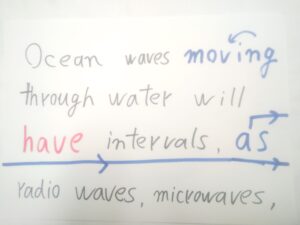 Ocean waves moving
through water will
have intervals, as
radio waves, microwaves,